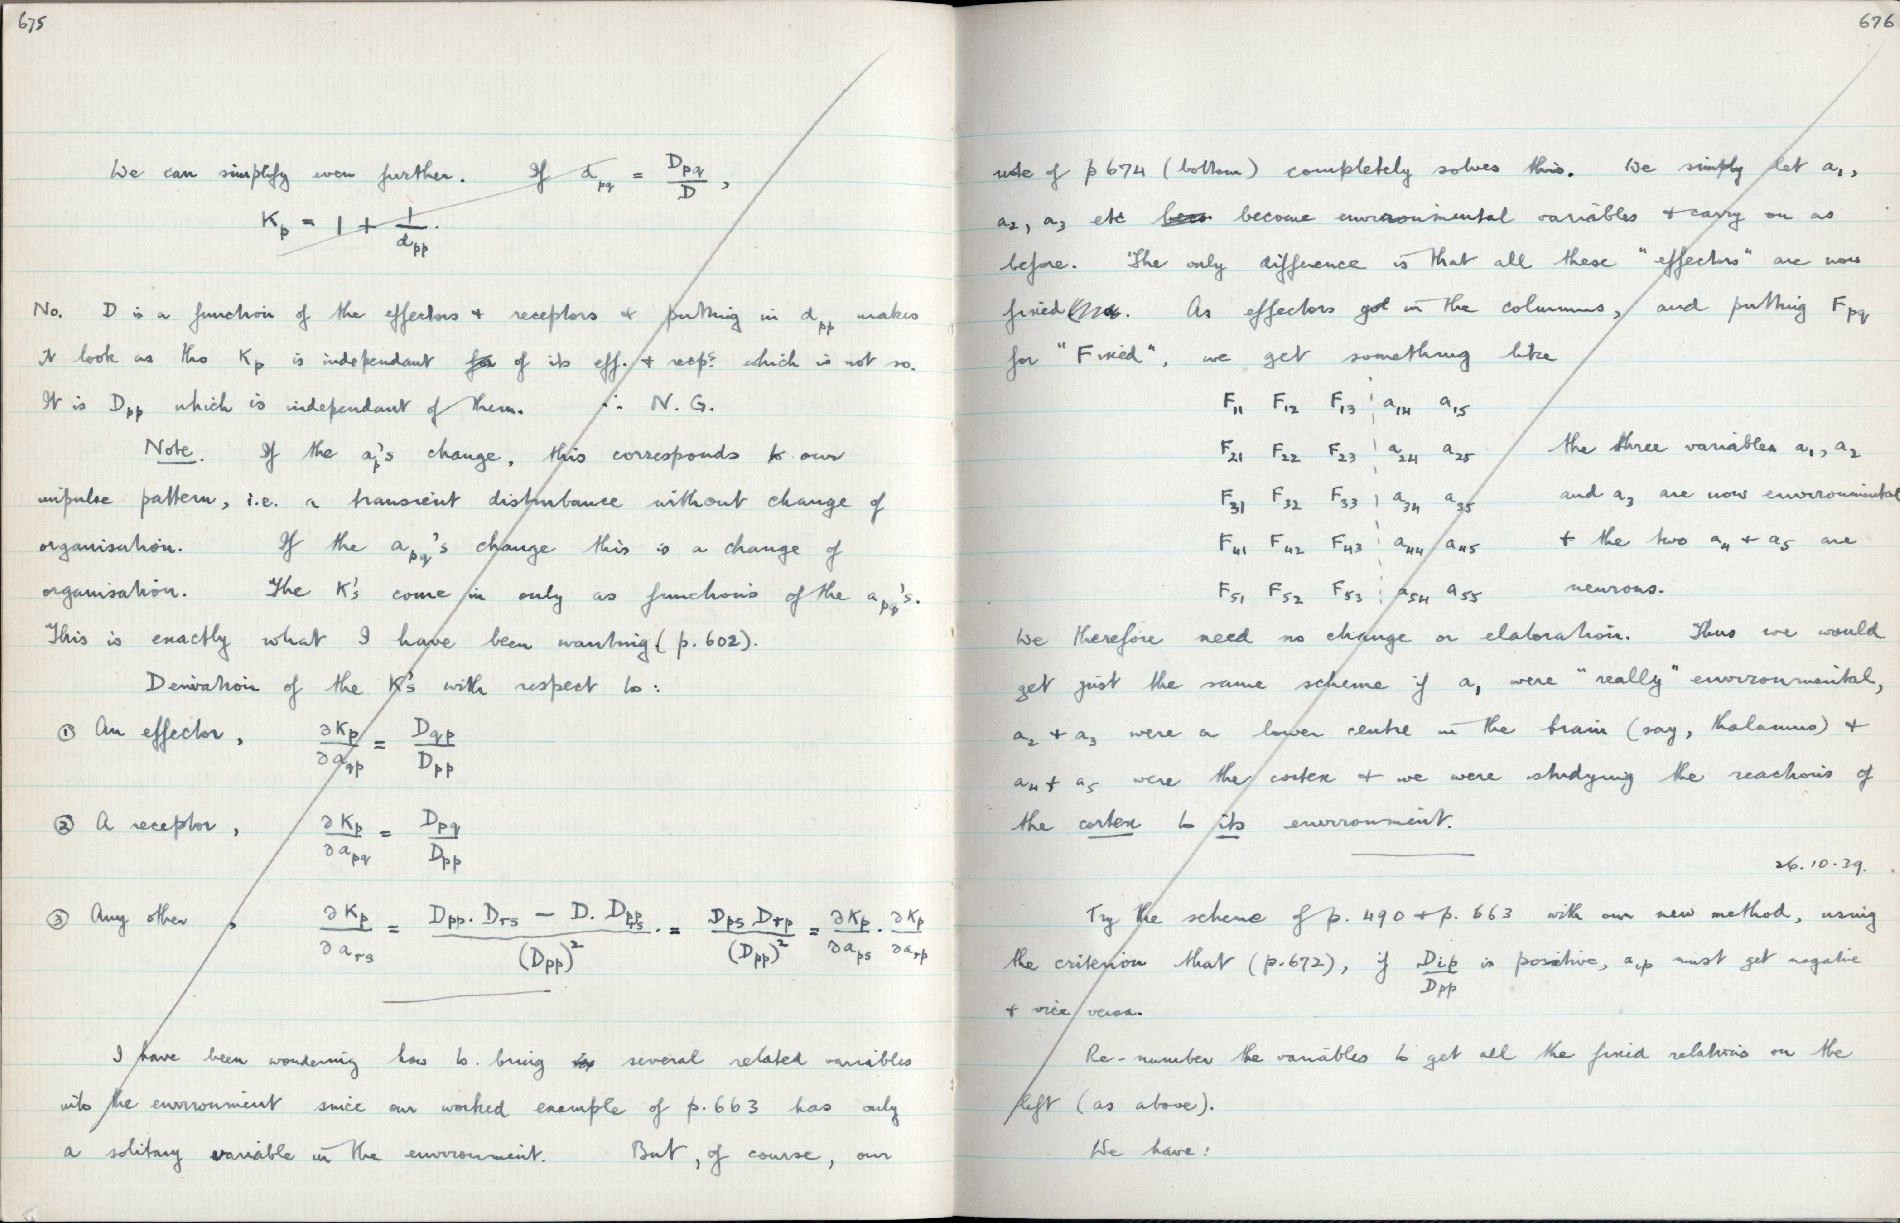 675
We can simplify even further. If d_pq = D_pq/D,
K_p = 1 + 1/d_pp.
No. D is a function of the effectors + receptors + putting in d_pp makes
it look as tho K_p is independant for of its eff. + recp.s which is not so.
It is D_pp which is independant of them. ∴ N.G.
Note. If the a_p's change, this corresponds to our
impulse pattern, i.e. a transient disturbance without change of
organisation. If the a_pq's change this is a change of
organisation. The K's come in only as functions of the a_pq's.
This is exactly what I have been wanting (p. 602).
Derivation of the K's with respect to:
① An effector, ∂K_p/∂a_qp = D_qp/D_pp
② A receptor, ∂K_p/∂a_pq = D_pq/D_pp
③ Any other, ∂K_p/∂a_rs = (D_pp. D_rs − D. D_pp,rs)/(D_pp)². = D_ps D_rp/(D_pp)² = ∂K_p/∂a_ps . ∂K_p/∂a_rp
I have been wondering how to bring in several related variables
into the environment since our worked example of p. 663 has only
a solitary variable in the environment. But, of course, our
676
note of p 674 (bottom) completely solves this. We simply let a₁,
a₂, a₃ etc become environmental variables + carry on as
before. The only difference is that all these "effectors" are now
fixed. As effectors go in the columns, and putting F_pq
for "Fixed", we get something like
F₁₁ F₁₂ F₁₃ ¦ a₁₄ a₁₅
F₂₁ F₂₂ F₂₃ ¦ a₂₄ a₂₅ the three variables a₁, a₂
F₃₁ F₃₂ F₃₃ ¦ a₃₄ a₃₅ and a₃ are now environmental
F₄₁ F₄₂ F₄₃ ¦ a₄₄ a₄₅ + the two a₄ + a₅ are
F₅₁ F₅₂ F₅₃ ¦ a₅₄ a₅₅ neurons.
We therefore need no change or elaboration. Thus we would
get just the same scheme if a₁ were "really" environmental,
a₂ + a₃ were a lower centre in the brain (say, thalamus) +
a₄ + a₅ were the cortex + we were studying the reactions of
the cortex to its environment.
26.10.39.
Try the scheme of p. 490 + p. 663 with our new method, using
the criterion that (p.672), if D_ip/D_pp is positive, a_ip must get negative
+ vice versa.
Re-number the variables to get all the fixed relations on the
left (as above).
We have: